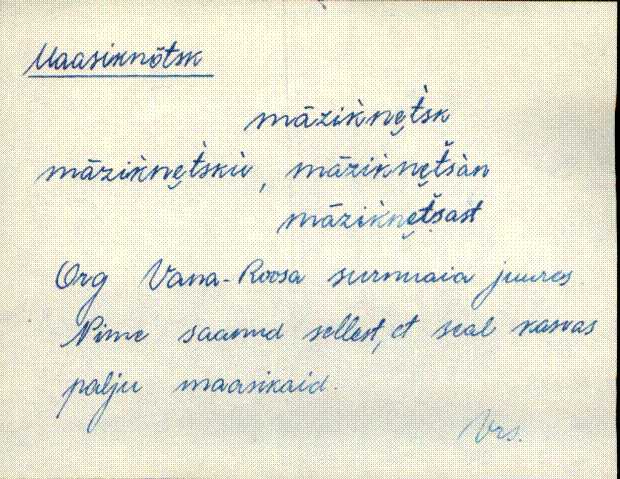 Maasiknõtsk
māzik̀nẹt̀sk
māzik̀nẹt̀skù, māzik̀nẹt̀šàn
māzik̀nẹtšast
Org Vana-Roosa surnuaia juures.
Nime saanud sellest, et seal kasvas
palju maasikaid.
Vrs.